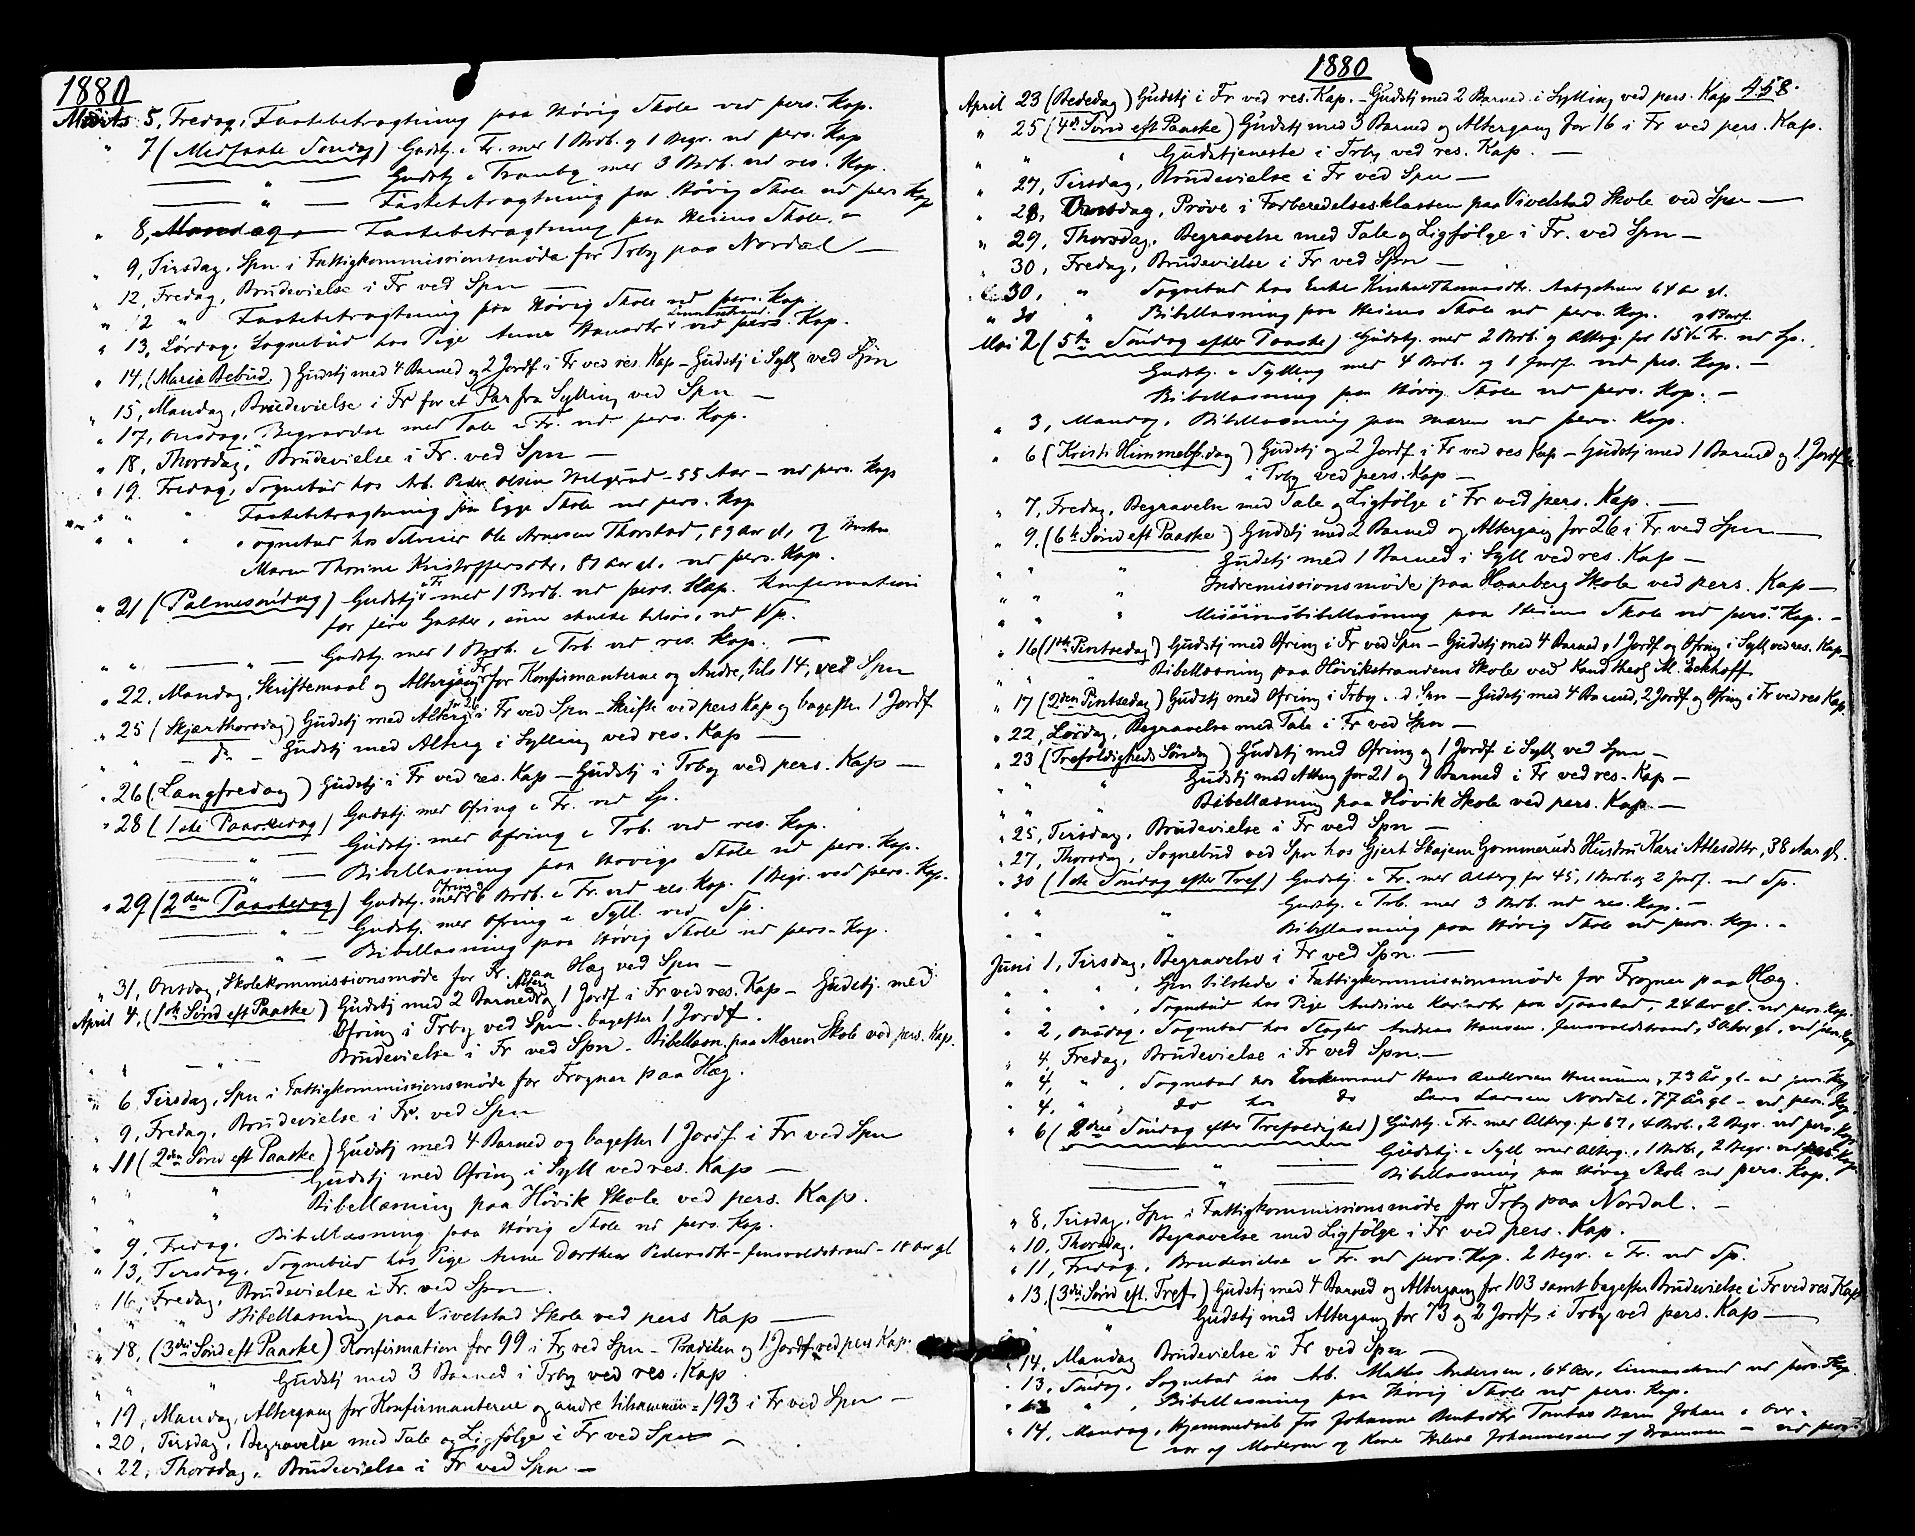 1880
Marts 5, Fredag, Fastebetragtning paa Høvig Skole ved pers. Kap.
" 7 (Midfaste Søndag) Gudstj. i Fr. med 1 Brdb. og 1 Begr. ved pers. Kap
— " — Gudstj. i Tranby med 3 Brdb. ved res. Kap.
— " — Fastebetragtning paa Høvig Skole ved pers. Kap
" 8, Mandag — Fastebetragtning paa Heiens Skole. —
" 9, Tirsdag, Spn i Fattigkommissionsmøde for Trby paa Nordal —
" 12, Fredag, Brudevielse i Fr ved Spn —
" 12 " Fastebetragtning paa Høvig Skole ved pers. Kap.
" 13, Lørdag. Sognebud hos Pige Anne Linnestrand ved pers. Kap.
" 14, (Maria Bebud.) Gudstj med 4 Barned og 2 Jordf i Fr ved res. Kap – Gudstj i Syll ved Spn
" 15, Mandag, Brudevielse i Fr for et Par fra Sylling ved Spn —
" 17, Onsdag. Begravelse med Tale i Fr. ved pers. Kap.
" 18, Thorsdag, Brudevielse i Fr. ved Spn —
" 19. Fredag, Sognebud hos Arb. Peder Olsen – 55 Aar – ved pers. Kap
" " " Fastebetragtning paa Egge Skole ved pers. Kap
" " " Sognebud hos Ole Arnesen Thorstad, 89 Aar gl, og
Maren Thorine Kristoffersdtr, 81 Aar gl. ved pers. Kap.
" 21 (Palmesøndag) Gudstj i Fr med 1 Brdb. ved pers. Kap. Konfirmation
for fire Gutter, ved Sp.
" " — " — Gudstj. med 1 Brdb. i Trb ved res. Kap. —
" 22. Mandag, Skriftemaal og Altergang i Fr for Konfirmanterne og Andre, tils 14, ved Spn
" 25 (Skjærthorsdag) Gudstj med Alterg i Fr ved Spn – Skrifte ved pers Kap og bagefter 1 Jordf
" " – do – Gudstj med Alterg i Sylling ved res. Kap —
" 26 (Langfredag) Gudstj i Fr ved res. Kap – Gudstj i Trby ved pers. Kap —
" 28 (1ste Paaskedag) Gudstj med Ofring i Fr. ved Sp.
— " — Gudstj. med Ofring i Trb. ved res. Kap.
— " — Bibellæsning paa Høvigs Skole ved pers. Kap.
" 29 (2den Paaskedag) Gudstj. med Ofring og 6 Brdb. i Fr. ved res. Kap. 1 Begr. ved pers. Kap.
— " — Gudstj. med Ofring i Syll. ved Sp.
— " — Bibellæsning paa Høvig Skole ved pers. Kap.
" 31, Onsdag, Skolekommissionsmøde for Fr. paa Hæg ved Spn —
April 4, (1ste Sønd eft Paaske) Gudstj med 2 Barned Alterg og 1 Jordf i Fr ved res. Kap – Gudstj. med
Ofring i Trby ved Spn. bagefter 1 Jordf.
" " — " Brudevielse i Fr ved Spn – Bibellæsn. paa Meren Skole ved pers. Kap.
" 6, Tirsdag, Spn i Fattigkommissionsmøde for Frogner paa Hæg.
" 9, Fredag, Brudevielse i Fr. ved Spn
" 11 (2den Sønd eft Paaske) Gudstj med 4 Barned og bagefter 1 Jordf. i Fr ved Spn
" " " Gudstj med Ofring i Syll ved res. Kap —
" " " Bibellæsning paa Høvik Skole ved pers. Kap.
" 9, Fredag. Bibellæsning paa Høvig Skole ved pers. Kap.
" 13, Tirsdag. Sognebud hos Pige Anne Dorthea Pedersdtr – Jensvoldstrand – 18 Aar gl
" 16, Fredag, Brudevielse i Fr. ved Spn.
" " " Bibellæsning paa Vivelstad Skole ved pers Kap —
" 18, (3die Sønd eft Paaske) Konfirmation for 99 i Fr ved Spn – og 1 Jordf. ved pers Kap.
" " " Gudstj med 3 Barned i Trby ved res. Kap
" 19, Mandag, Altergang for Konfirmanterne og andre tilsammen = 193 i Fr ved Spn —
" 20, Tirsdag, Begravelse med Tale og Ligfølge i Fr ved Spn —
" 22, Thorsdag, Brudevielse i Fr ved Spn —
1880
458.
April 23 (Bededag) Gudstj i Fr ved res. Kap. – Gudstj med 2 Barned. i Sylling ved pers. Kap
" 25 (4de Sønd eft Paaske) Gudstj med 3 Barned og Altergang for 16 i Fr ved pers. Kap.
" " " Gudstjeneste i Trby ved res. Kap. —
" 27, Tirsdag, Brudevielse i Fr ved Spn —
" 28, Onsdag, Prøve i Forberedelsesklassen paa Vivelstad Skole ved Spn —
" 29, Thorsdag, Begravelse med Tale og Ligfølge i Fr. ved Spn —
" 30, Fredag, Brudevielse i Fr ved Spn —
" 30, " Sognebud hos Enke 64 Aar gl.
" 30 " Bibellæsning paa Heiens Skole ved pers. Kap.
Mai 2 (5te Søndag efter Paaske) Gudstj. med 2 Brdb. og Altrg. for 15 i Fr. ved Sp. og 1 Jordf.
Gudstj. i Sylling med 4 Brdb. og 1 Jordf. ved res. Kap. —
Bibellæsning paa Høvig Skole ved pers. Kap. —
" 3, Mandag, Bibellæsning paa Meren ved pers. Kap.
" 6 (Kristi Himmelf.dag) Gudstj og 2 Jordf i Fr ved res Kap – Gudstj med 1 Barned og 1 Jordf
i Trby ved pers. Kap —
" 7, Fredag, Begravelse med Tale og Ligfølge i Fr ved pers. Kap. —
" 9. (6te Sønd eft Paaske) Gudstj med 2 Barned og Altergang for 26 i Fr ved Spn —
" " " Gudstj med 1 Barned i Syll ved res. Kap —
" " " Indremissionsmøde paa Haaberg Skole ved pers. Kap —
" " " Missionsbibellæsning paa Heiens Skole ved pers. Kap. —
" 16 (1ste Pintsedag) Gudstj med Ofring i Fr ved Spn – Gudstj med 4 Barned, 1 Jordf og Ofring i Syll. ved res. Kap —
" " " Bibellæsning paa Høvikstrandens Skole ved Kand theol M. Eckhoff
" 17 (2den Pintsedag) Gudstj med Ofring i Trby ved Spn – Gudstj med 4 Barned, 2 Jordf og Ofring i Fr ved res Kap.
" 22, Lørdag, Begravelse med Tale i Fr ved Spn —
" 23 (Trefoldigheds Søndag) Gudstj med Ofring og 1 Jordf i Syll ved Spn —
" " " Gudstj med Alterg for 21 og 1 Barned i Fr ved res. Kap —
" " " Bibellæsning paa Høvik Skole ved pers. Kap. —
" 25, Tirsdag, Brudevielse i Fr ved Spn —
" 27, Thorsdag, Sognebud ved Spn hos Gjert Skajem Gommeruds Hustru Kari Atlesdtr, 38 Aar gl.
" 30 (1ste Søndag efter Tref) Gudstj. i Fr. med Alterg for 45, 1 Brdb. og 2 Jordf. ved Sp.
" " " Gudstj. i Trb. med 3 Brdb. ved res. Kap. —
" " " Bibellæsning paa Høvig Skole ved pers. Kap. —
Juni 1, Tirsdag, Begravelse i Fr ved Spn. —
" " ", Spn tilstede i Fattigkommissionsmøde for Frogner paa Hæg.
" " ", Sognebud hos Pige Andrine paa, 24 Aar gl. ved pers. Kap.
" 2, Onsdag, Sognebud hos Slagter Andreas Hansen, Jensvoldstrand, 50 Aar gl, ved pers. Kap
" 4, Fredag, Brudevielse i Fr ved Spn. —
" 4, ", Sognebud hos Enkemand Hans Andersen, 73 År gl – ved pers. Kap
" 4, ", do hos do Lars Larsen Nordal, 77 År gl – ved pers. Kap.
" 6 (2den Søndag efter Trefoldighed) Gudstj. i Fr. med Altrg. for 67, 4 Brdb., 2 Begr. ved pers. Kap
— " — Gudstj. i Syll med Altrg., 1 Brdb., 2 Begr. ved res. Kap
— " — Bibellæsning paa Høvig Skole ved pers. Kap.
" 8, Tirsdag, Spn i Fattigkommissionsmøde for Trby paa Nordal. —
" 10, Thorsdag. Begravelse med Ligfølge i Fr ved pers. Kap.
" 11, Fredag, Brudevielse i Fr. ved pers. Kap. 2 Begr. i Fr. ved Sp.
" 13. (3die Sønd eft. Tref.) Gudstj med 4 Barned og Altergang for 103 samt bagefter Brudevielse i Fr ved res Kap
" " " Gudstj med Altergang for 73 og 2 Jordf i Trby ved pers. Kap —
" 14, Mandag Brudevielse i Fr ved Spn —
" 13, Søndag, Sognebud hos Arb. Mathis Andersen, 64 Aar, Linnestrand ved pers. Kap.
" 13 ", Bibellæsning paa Høvig Skole ved pers. Kap.
" 14, Mandag, Hjemmedaab for Johanne Barn Johan i Over-
vær af Moderen og Kone Helene Johannesen af Drammen – ved pers.